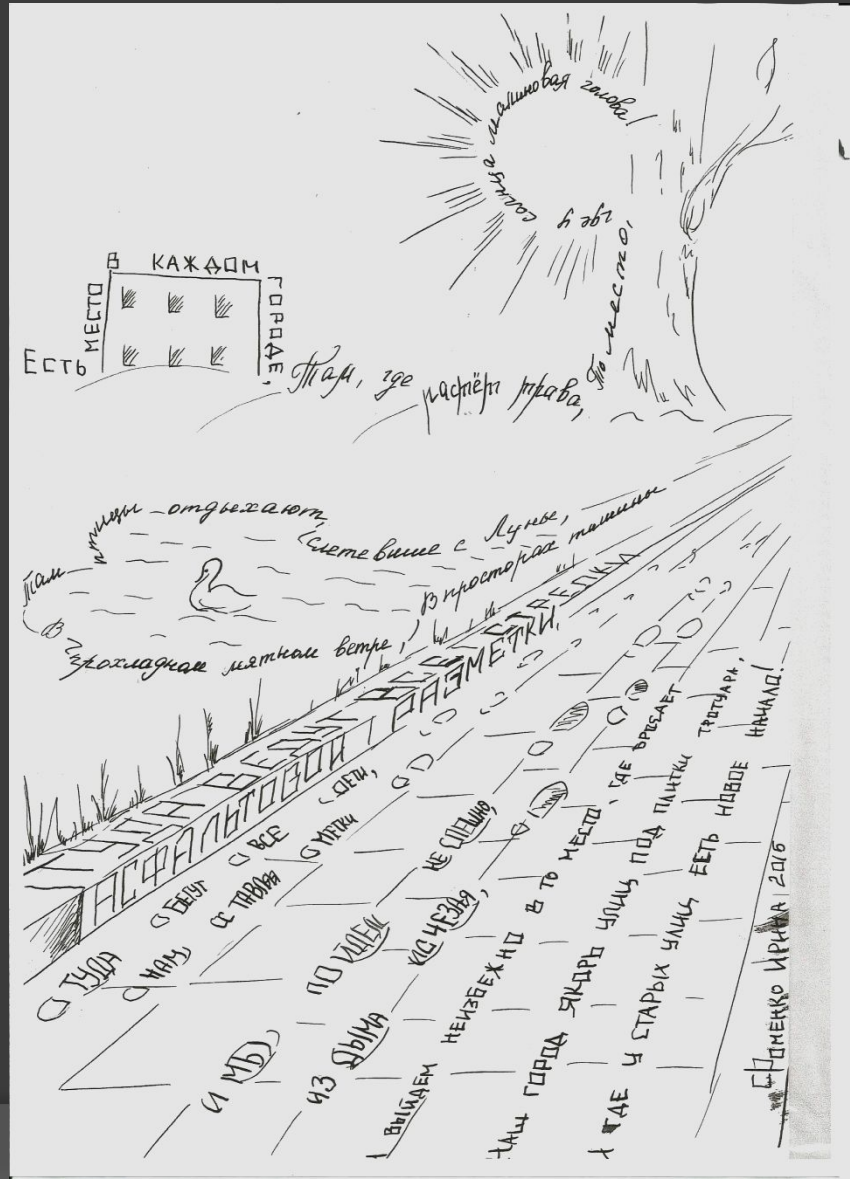 Есть МЕСТО В КАЖДОМ ГОРОДЕ,
Там, где растёт трава,
То место, где у солнца малиновая голова!
Там птицы отдыхают, слетевшие с Луны,
В прохладном мятном ветре, В просторах тишины
ТУДА ВЕДУТ ВСЕ СТРЕЛКИ
АСФАЛЬТОВОЙ РАЗМЕТКИ.
ТУДА БЕГУТ ВСЕ ДЕТИ,
НАМ ОСТАВЛЯЯ МЕТКИ
И МЫ ПОЙДЕМ НЕ СПЕШНО,
ИЗ ДЫМА ИСЧЕЗАЯ,
И ВЫЙДЕМ НЕИЗБЕЖНО В ТО МЕСТО, ГДЕ БРОСАЕТ
НАШ ГОРОД ЯКОРЬ УЛИЦ ПОД ПЛИТКИ ТРОТУАРА,
И ГДЕ У СТАРЫХ УЛИЦ ЕСТЬ НОВОЕ НАЧАЛО!
ФОМЕНКО ИРИНА 2015